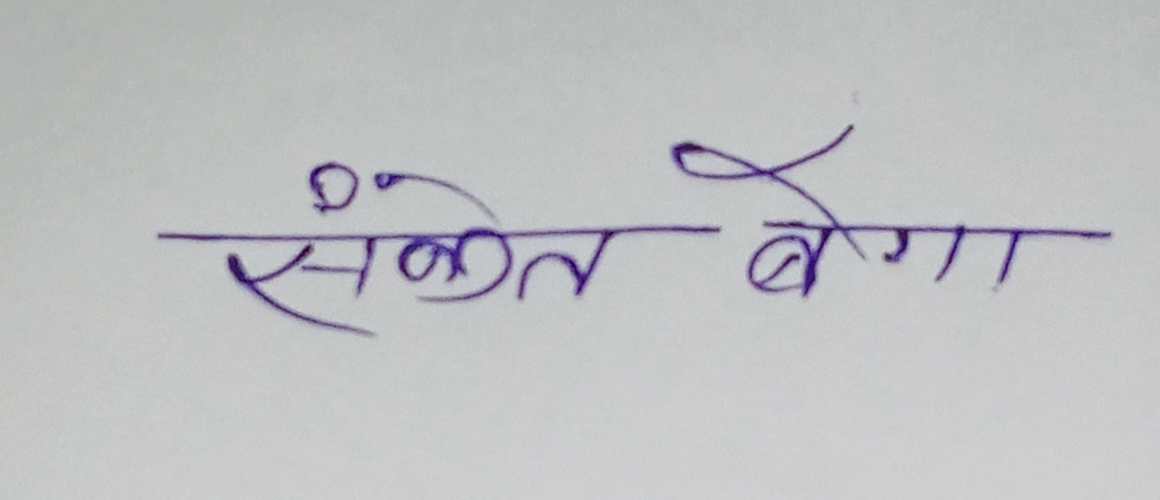 संकेत बैगा